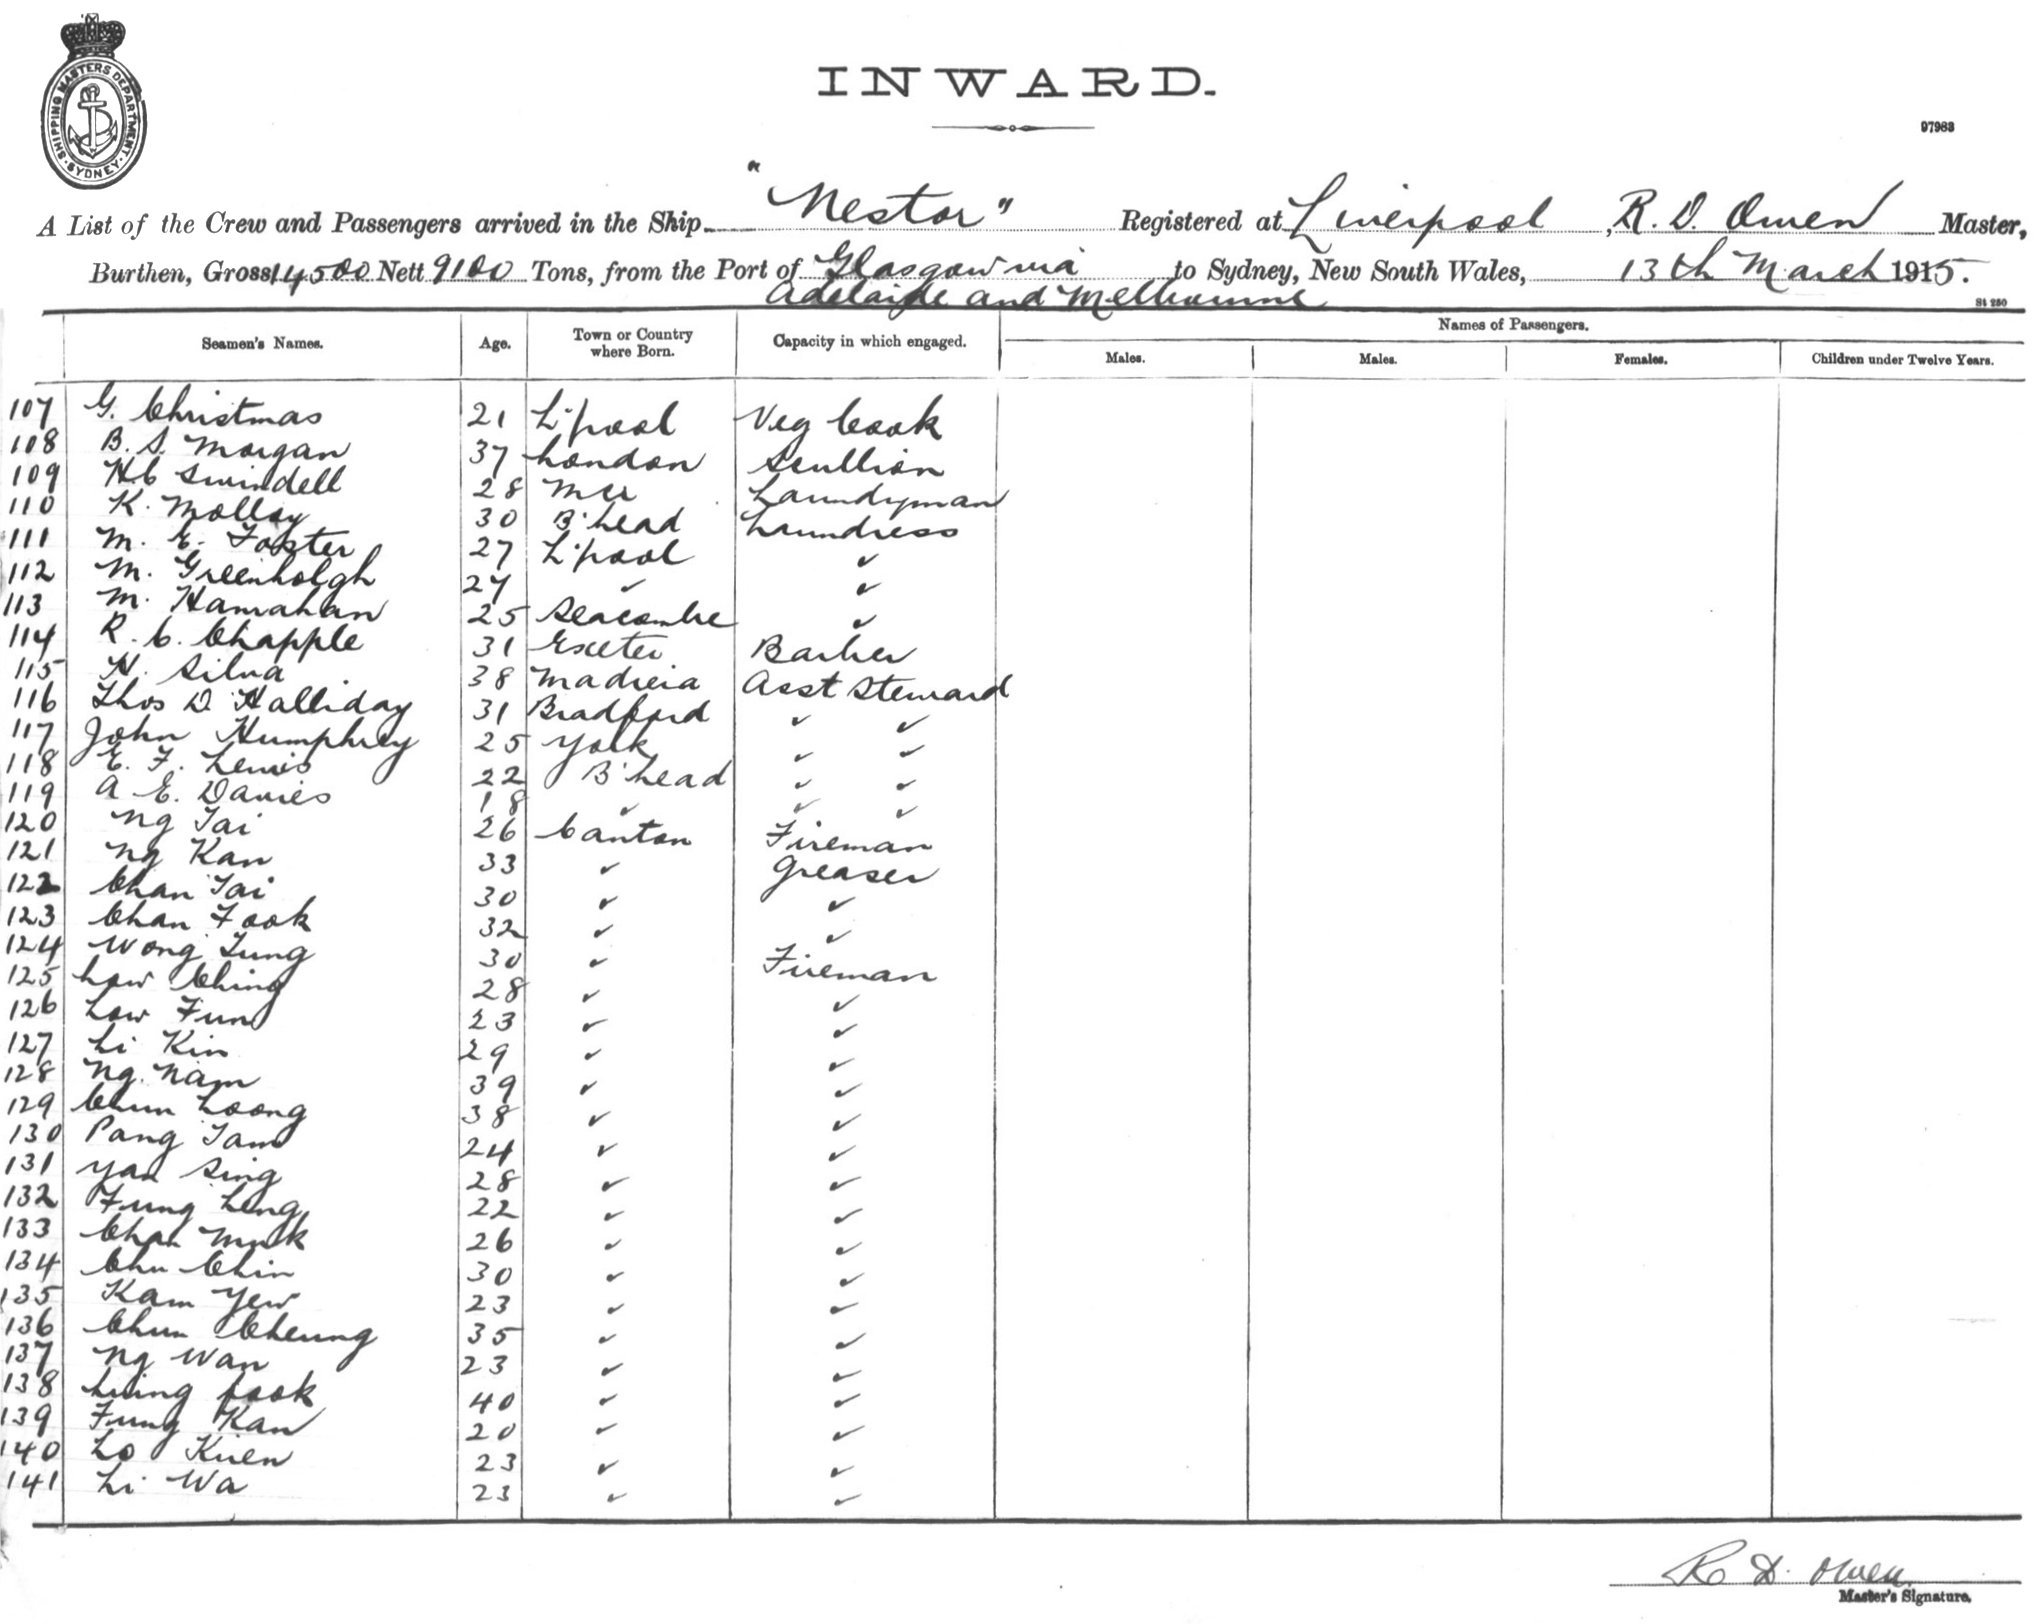 SHIPPING MASTERS DEPARTMENT · SYDNEY ·
INWARD.
97983
A List of the Crew and Passengers arrived in the Ship "Nestor" Registered at Liverpool, R. D. Owen Master,
Burthen, Gross 14500 Nett 9100 Tons, from the Port of Glasgow via to Sydney, New South Wales, 13th March 1915.
Adelaide and Melbourne
St 250
Seamen's Names. Age. Town or Country where Born. Capacity in which engaged. Names of Passengers.
Males. Males. Females. Children under Twelve Years.
107 G. Christmas 21 L'pool Veg Cook
108 B. S. Morgan 37 London Scullion
109 H C Swindell 28 Laundryman
110 K. Molloy 30 B'head Laundress
111 M. E. Foster 27 L'pool ✓
112 M. Greenholgh 27 ✓ ✓
113 M. Hanrahan 25 Seacombe ✓
114 R. C. Chapple 31 Exeter Barber
115 H. Silva 38 Madieia Asst Steward
116 Thos D Halliday 31 Bradford ✓ ✓
117 John Humphrey 25 York ✓ ✓
118 E. F. Lewis 22 B'head ✓ ✓
119 A E. Davies 18 ✓ ✓ ✓
120 Ng Tai 26 Canton Fireman
121 Ng Kan 33 ✓ Greaser
122 Chan Tai 30 ✓ ✓
123 Chan Fook 32 ✓ ✓
124 Wong Tung 30 ✓ Fireman
125 Low Ching 28 ✓ ✓
126 Low Fung 23 ✓ ✓
127 Li Kin 29 ✓ ✓
128 Ng. Nam 39 ✓ ✓
129 Chun Loong 38 ✓ ✓
130 Pang Tam 24 ✓ ✓
131 Yan Sing 28 ✓ ✓
132 Fung Leng 22 ✓ ✓
133 Chan Muk 26 ✓ ✓
134 Chu Chin 30 ✓ ✓
135 Kam Yew 23 ✓ ✓
136 Chun Cheung 35 ✓ ✓
137 Ng Wan 23 ✓ ✓
138 40 ✓ ✓
139 Fung Kan 20 ✓ ✓
140 Lo Kuen 23 ✓ ✓
141 Li Wa 23 ✓ ✓
R. D. Owen.
Master's Signature.